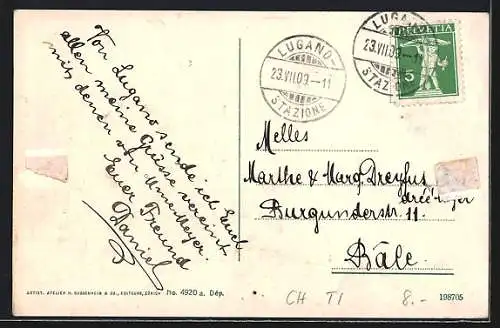 Von Lugano sende ich Euch
allen meine Grüsse vereint
mit denen von Mme Meyer.
Euer Freund
Daniel
LUGANO
23.VII.09.-11
STAZIONE
LUGANO
23.VII.09.-11
STAZIONE
HELVETIA
5
Melles
Marthe & Marg. Dreyfus
Burgunderstr. 11.
Bâle.
ARTIST. ATELIER H. GUGGENHEIM & CO., EDITEURS, ZÜRICH
No. 4920 a. Dép.
CH TI
8.-
198705